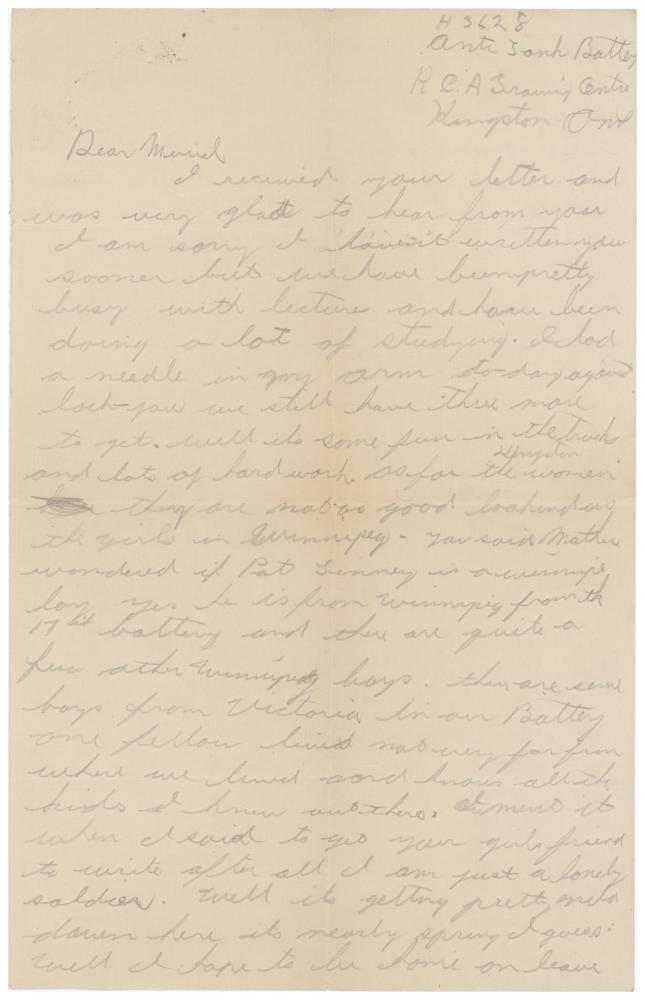 H 3628
Anti Tank Battery
R.C.A Training Centre
Kingston Ont
Dear Muriel
I received your letter and
was very glad to hear from you
I am sorry I haven't written you
sooner but we have been pretty
busy with lectures and have been
doing a lot of studying. I had
a needle in my arm to-day against
lock-jaw we still have three more
to get. Well its some fun in the trucks
and lots of hard work. as for the Kingston women
they are not as good looking as
the girls in Winnipeg. You said Mother
wondered if Pat Finney is a winnipeg
boy yes he is from Winnipeg from the
17th battery and there are quite a
few other Winnipeg boys. there are some
boys from Victoria in our Battery
one fellow lived not very far from
where we lived and knows all the
kids I knew out there. I ment it
when I said to get your girl friend
to write after all I am just a lonely
soldier. Well its getting pretty mild
down here its nearly spring I guess.
Well I hope to be home on leave